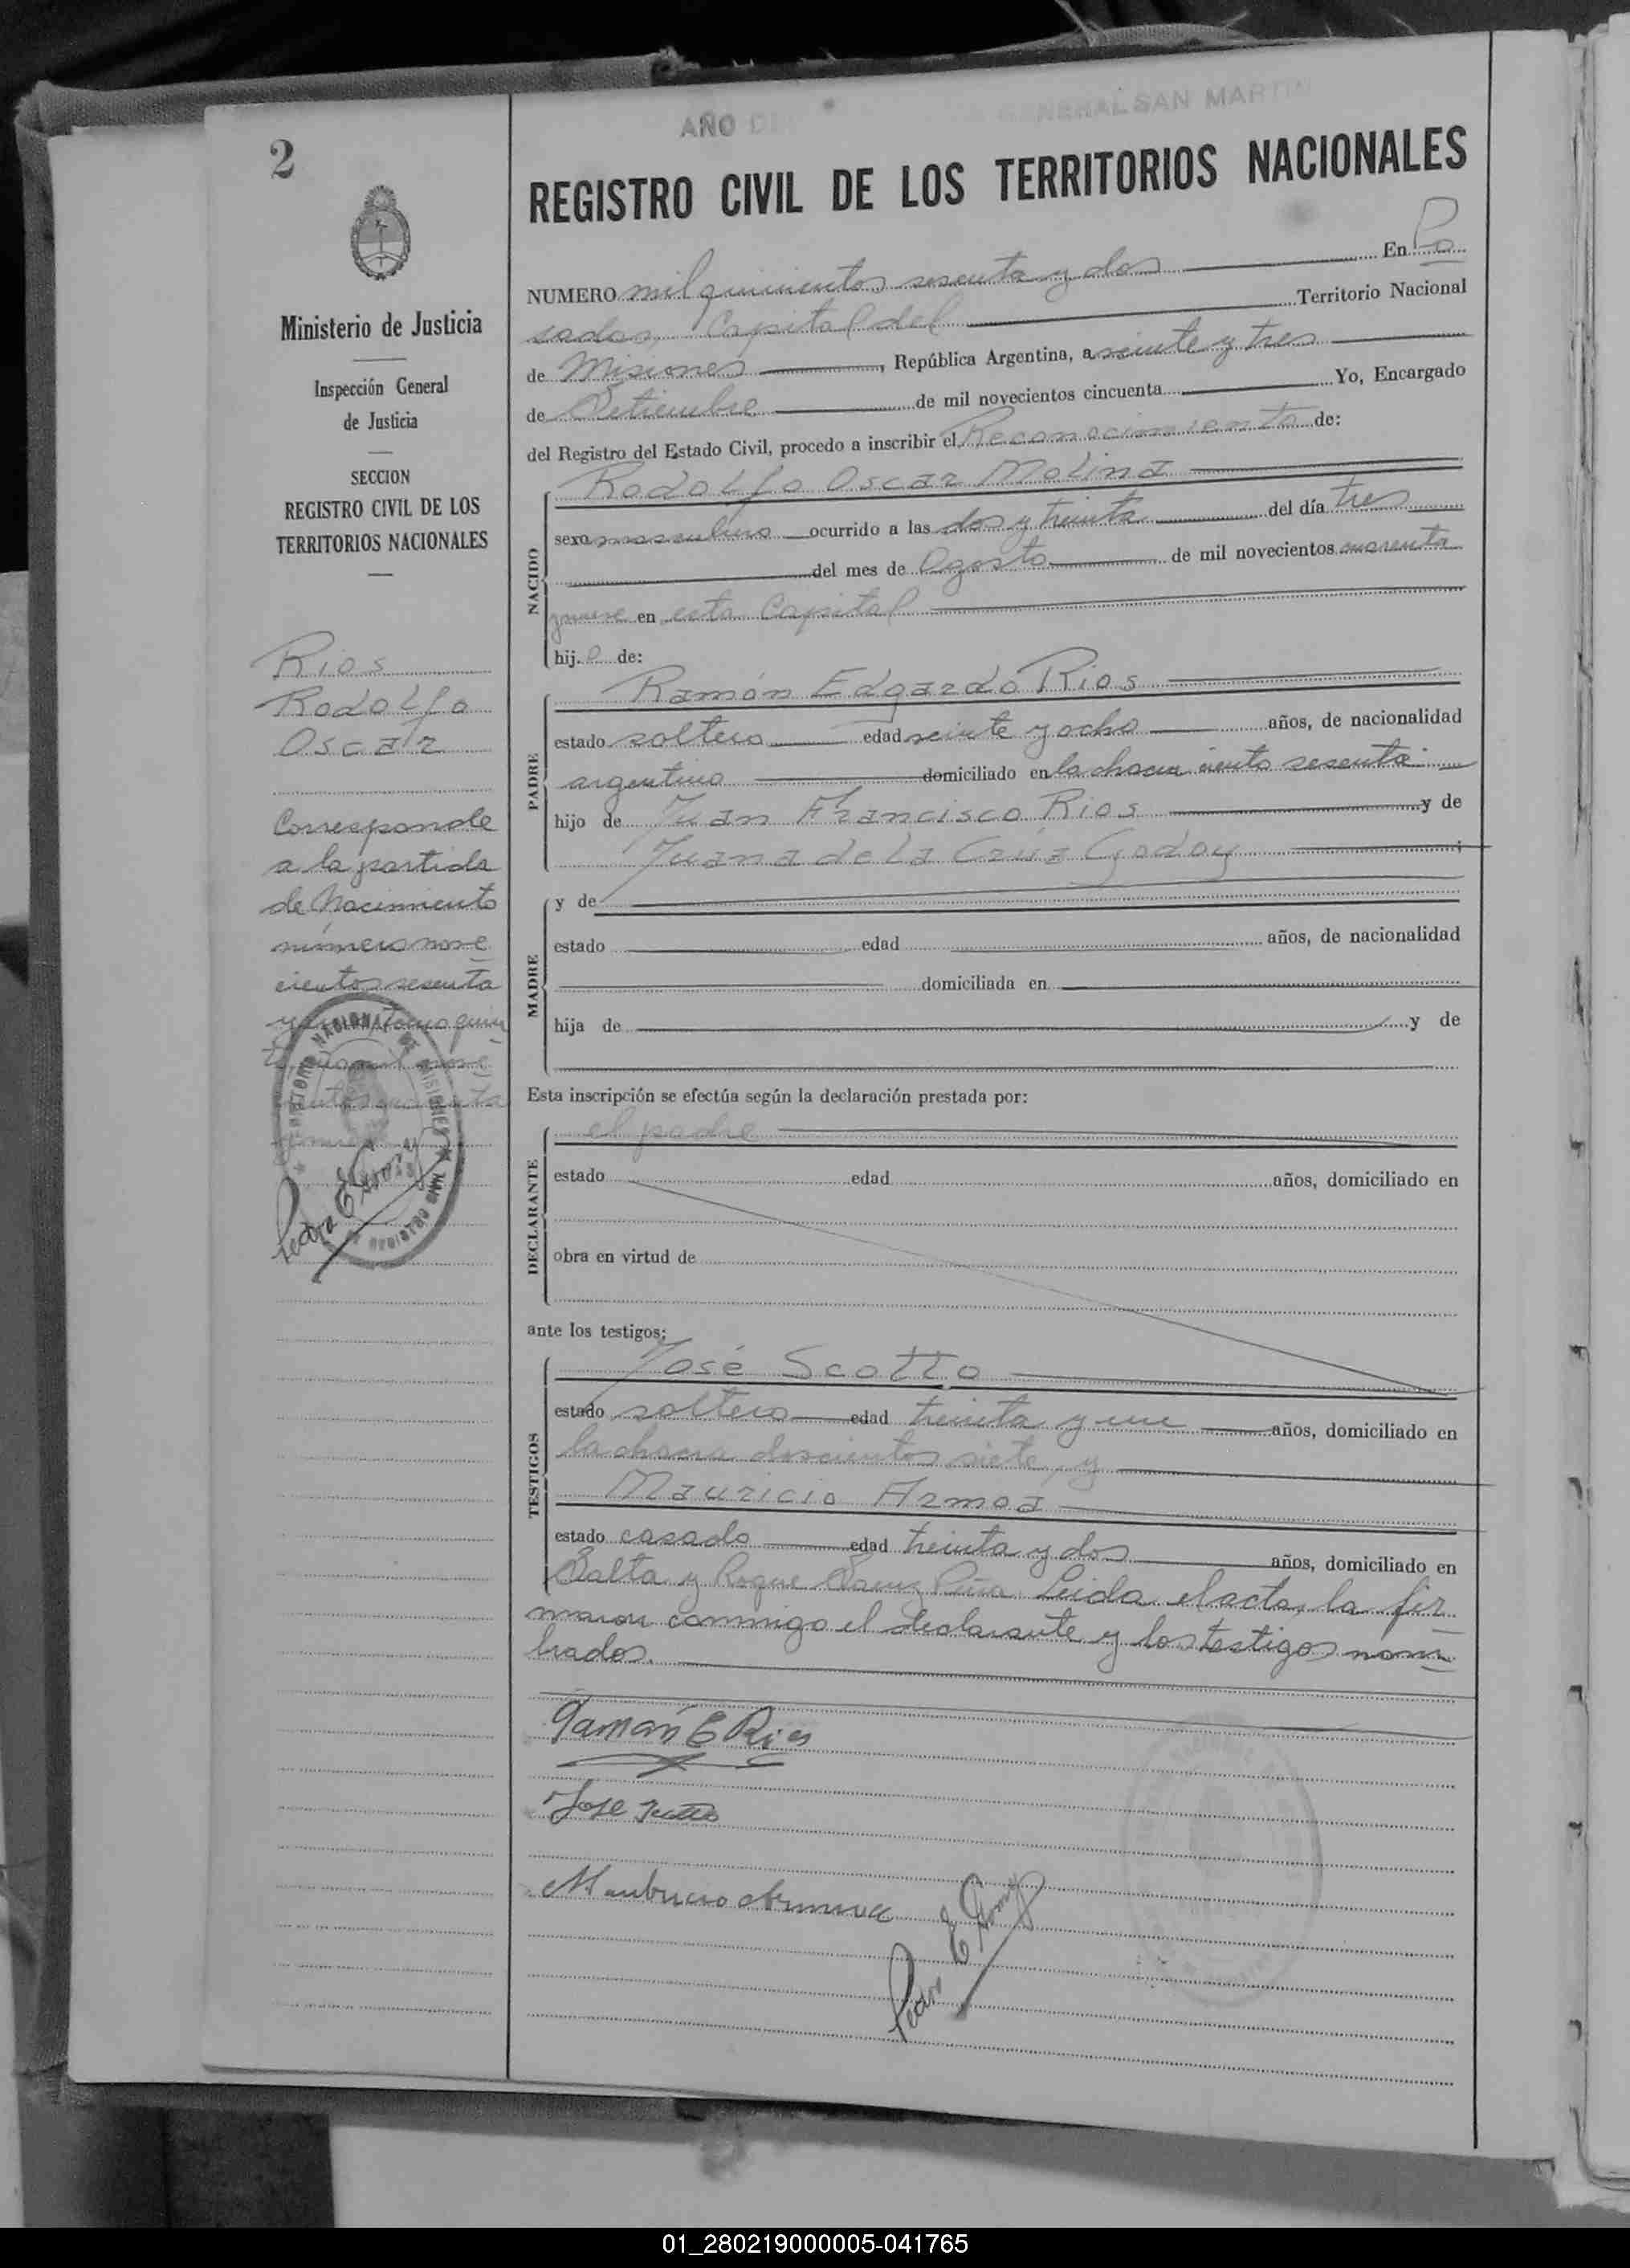 AÑO DEL GENERAL SAN MARTIN
2
REGISTRO CIVIL DE LOS TERRITORIOS NACIONALES
Ministerio de Justicia
Inspección General
de Justicia
SECCION
REGISTRO CIVIL DE LOS
TERRITORIOS NACIONALES
Rios
Rodolfo
Oscar
Corresponde
a la partida
de Nacimiento
número nove
cientos sesenta
NUMERO mil quinientos sesenta y dos En Po
sadas, Capital del Territorio Nacional
de Misiones, República Argentina, a veinte y tres
de Setiembre de mil novecientos cincuenta Yo, Encargado
del Registro del Estado Civil, procedo a inscribir el Reconocimiento de:
NACIDO
Rodolfo Oscar Molina
sexo masculino ocurrido a las dos y treinta del día tres
del mes de Agosto de mil novecientos cuarenta
y nueve en esta Capital
hijo de:
PADRE
Ramón Edgardo Rios
estado soltero edad veinte y ocho años, de nacionalidad
argentina domiciliado en la chacra ciento sesenta
hijo de Juan Francisco Rios y de
Juana de la Cruz Godoy
MADRE
y de
estado edad años, de nacionalidad
domiciliada en
hija de y de
Esta inscripción se efectúa según la declaración prestada por:
DECLARANTE
el padre
estado edad años, domiciliado en
obra en virtud de
ante los testigos:
TESTIGOS
José Scotto
estado soltero edad treinta y un años, domiciliado en
la chacra doscientos siete, y
Mauricio Armoa
estado casado edad treinta y dos años, domiciliado en
Salta y Roque Saenz Peña. Leida el acta, la fir
maron conmigo el declarante y los testigos nom
brados.
Ramón E Rios
Jose
01_280219000005-041765